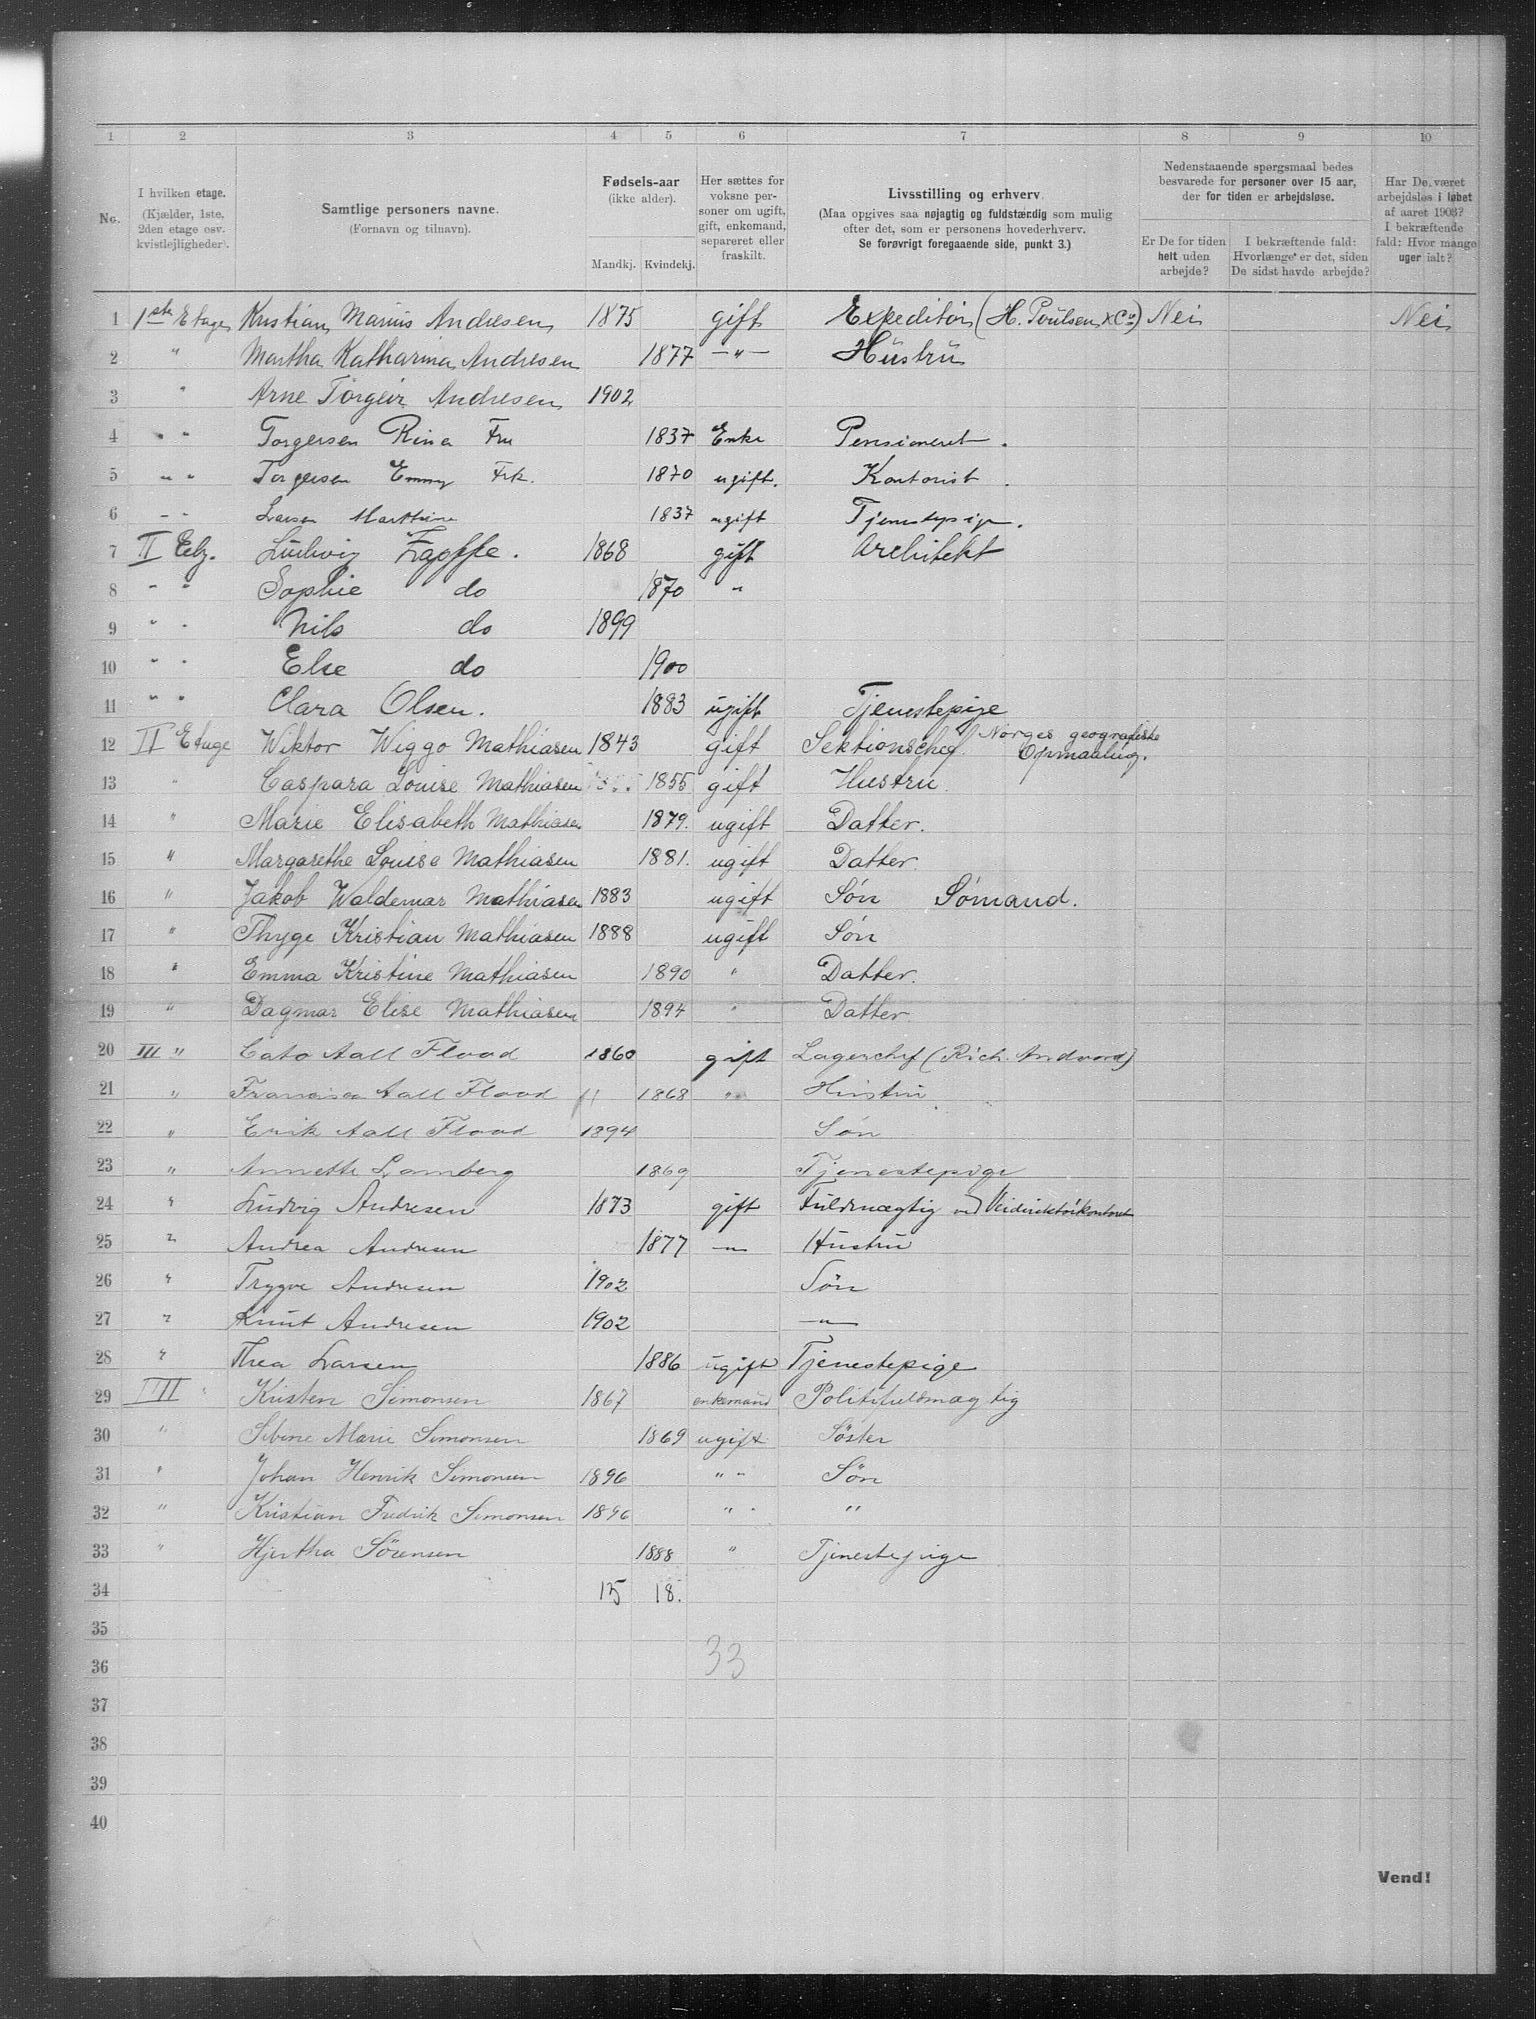 1 2 3 4 5 6 7 8 9 10
No.
I hvilken etage.
(Kjælder, 1ste,
2den etage osv.
kvistlejligheder).
Samtlige personers navne.
(Fornavn og tilnavn).
Fødsels-aar
(ikke alder).
Mandkj. Kvindekj.
Her sættes for
voksne per-
soner om ugift,
gift, enkemand,
separeret eller
fraskilt.
Livsstilling og erhverv.
(Maa opgives saa nøjagtig og fuldstærdig som mulig
efter det, som er personens hovederhverv.
Se forøvrigt foregaaende side, punkt 3.)
Nedenstaaende spørgsmaal bedes
besvarede for personer over 15 aar,
der for tiden er arbejdsløse.
Er De for tiden
helt uden
arbejde?
I bekræftende fald:
Hvorlænge er det, siden
De sidst havde arbejde?
Har De været
arbejdsløs i løbet
af aaret 1903?
I bekræftende
fald: Hvor mange
uger ialt?
1 1ste Etage Kristian Marius Andresen 1875 gift Expeditör (H. Poulsen & Co) Nei Nei
2 " Martha Katharina Andresen 1877 —"— Hustru
3 " Arne Torgeir Andresen 1902
4 " " Torgersen Rina Fru 1837 Enke Pensioneret.
5 " " Torgersen Emmy Frk. 1870 ugift. Kontorist.
6 " " Larsen Marthine 1837 ugift Tjenestepige.
7 II Etg. Ludvig 1868 gift Architekt
8 " " Sophie do 1870 "
9 " " Nils do 1899
10 " " Else do 1900
11 " " Clara Olsen. 1883 ugift Tjenestepige
12 II Etage Wiktor Wiggo Mathiasen 1843 gift Sektionschef. Norges geografiske Opmaaling.
13 " Caspara Louise Mathiasen 1855 gift Hustru
14 " Marie Elisabeth Mathiasen 1879. ugift Datter.
15 " Margarethe Louise Mathiasen 1881. ugift Datter.
16 " Jakob Waldemar Mathiasen 1883 ugift Søn Sømand.
17 " Thyge Kristian Mathiasen 1888 ugift Søn
18 " Emma Kristine Mathiasen 1890 " Datter.
19 " Dagmar Elise Mathiasen 1894 " Datter.
20 III " Cato Aall Flood 1860 gift Lagerchef (Rich. Andvord)
21 " Francisca Aall Flood 1868 " Hustru
22 " Erik Aall Flood 1894 Søn
23 " Annette Lamberg 1869 Tjenestepige
24 " Ludvig Andresen 1873 gift Fuldmægtig ved Veidirektörkontoret
25 " Andrea Andresen 1877 —"— Hustru
26 " Trygve Andresen 1902 Sön
27 " Knut Andresen 1902 —"—
28 " Thea Larsen 1886 ugift Tjenestepige
29 IIII " Kristen Simonsen 1867 enkemand Politifuldmægtig
30 " Sibine Marie Simonsen 1869 ugift Söster
31 " Johan Henrik Simonsen 1896 " " Sön
32 " Kristian Fredrik Simonsen 1896 " " "
33 " Hjertha Sörensen 1888 " Tjenestepige
34 15 18.
35
36 33
37
38
39
40
Vend!